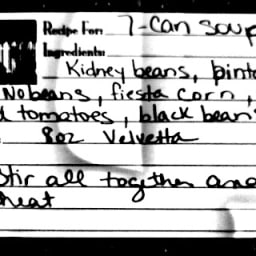 Recipe For: 7-Can Soup
Ingredients:
Kidney beans, pinto
beans, fiesta corn,
tomatoes, black beans
8oz Velvetta
Stir all together and
heat